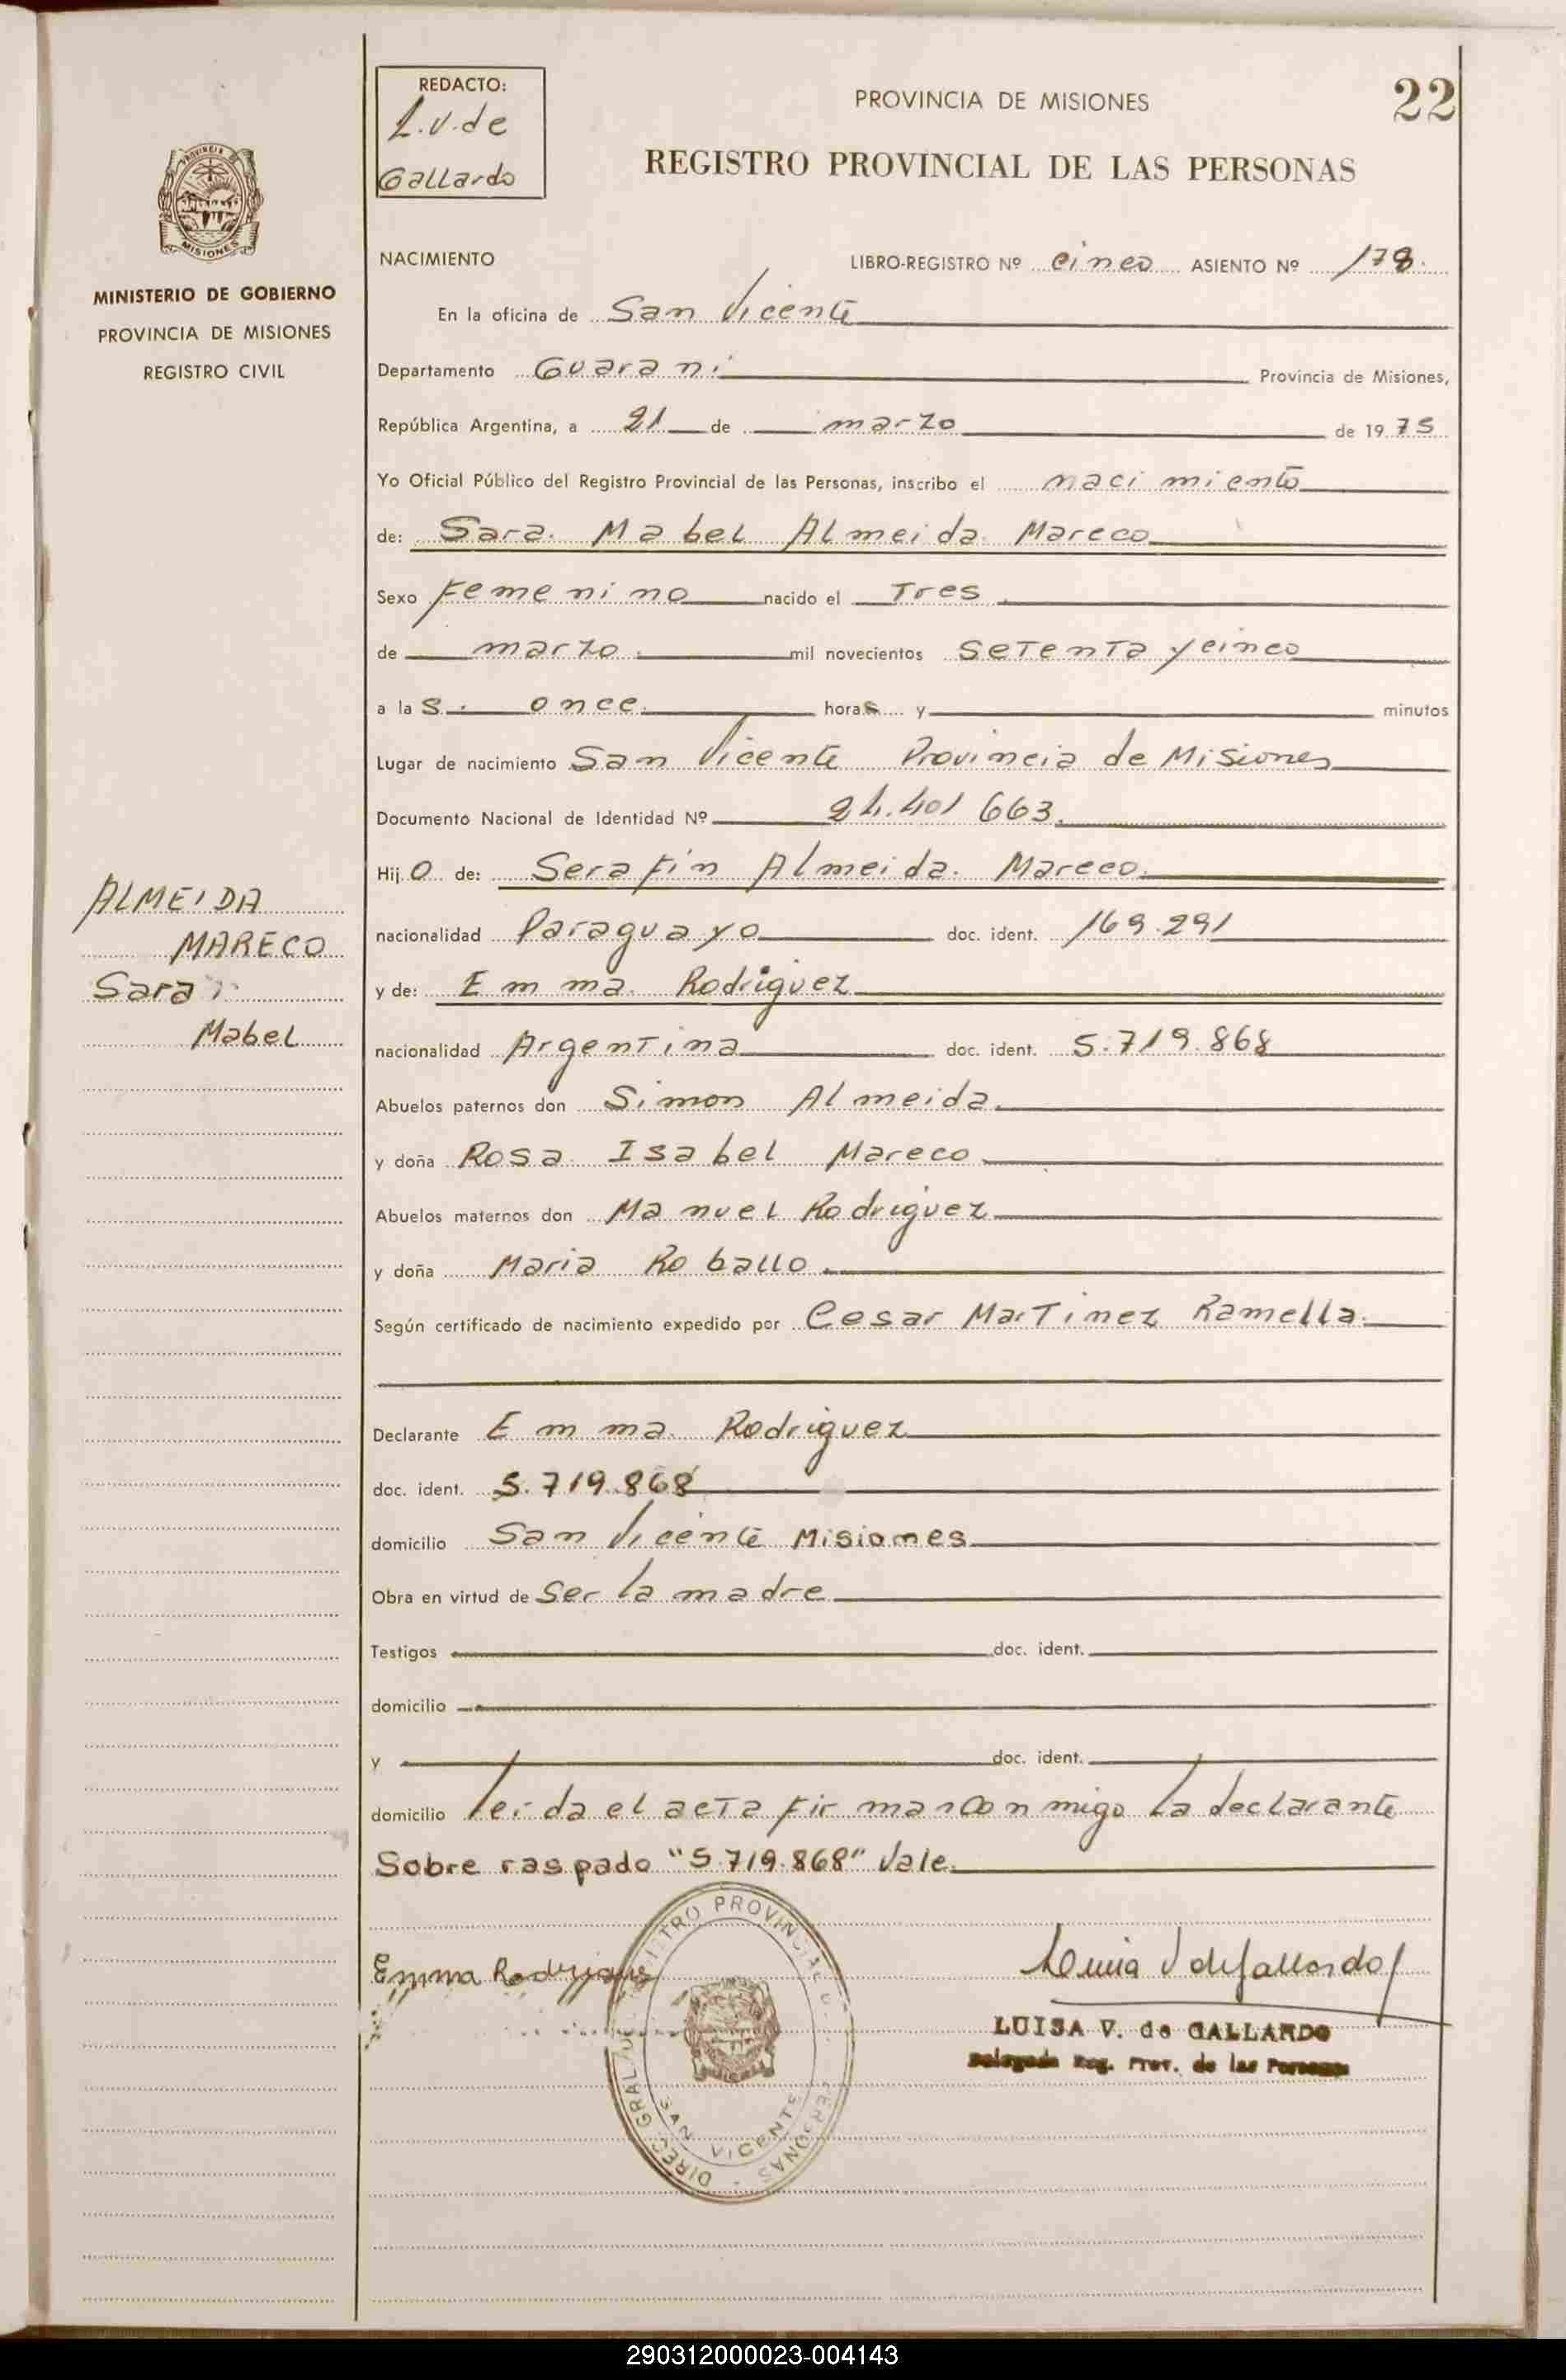 REDACTO:
L.V. de
Gallardo
PROVINCIA DE MISIONES
22
REGISTRO PROVINCIAL DE LAS PERSONAS
PROVINCIA DE
MISIONES
MINISTERIO DE GOBIERNO
PROVINCIA DE MISIONES
REGISTRO CIVIL
NACIMIENTO LIBRO-REGISTRO Nº cinco ASIENTO Nº 178.
En la oficina de San Vicente
Departamento Guarani Provincia de Misiones,
República Argentina, a 21 de marzo de 1975
Yo Oficial Público del Registro Provincial de las Personas, inscribo el nacimiento
de: Sara Mabel Almeida Mareco
Sexo Femenino nacido el Tres
de marzo mil novecientos setenta y cinco
a las once horas y minutos
Lugar de nacimiento San Vicente Provincia de Misiones
Documento Nacional de Identidad Nº 24.401 663.
Hijo de: Serafín Almeida Mareco
nacionalidad Paraguayo doc. ident. 169.291
y de: Emma Rodriguez
nacionalidad Argentina doc. ident. 5.719.868
Abuelos paternos don Simon Almeida
y doña Rosa Isabel Mareco
Abuelos maternos don Manuel Rodriguez
y doña Maria Roballo
Según certificado de nacimiento expedido por Cesar Martinez Ramella
Declarante Emma Rodriguez
doc. ident. 5.719.868
domicilio San Vicente Misiones
Obra en virtud de Ser la madre
Testigos doc. ident.
domicilio
y doc. ident.
domicilio leida el acta firman conmigo la declarante
Sobre raspado "5.719.868" Vale
ALMEIDA
MARECO
Sara
Mabel
Emma Rodriguez
Luisa V de Gallardo
LUISA V. de GALLARDO
Delegada Reg. Prov. de las Personas
SAN VICENTE
290312000023-004143